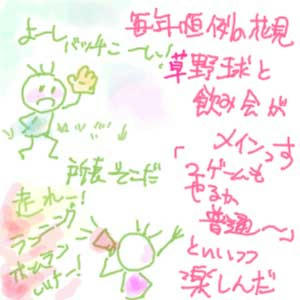 毎年恒例の花見
草野球と
飲み会が
メインっす
「2ゲームも
やるか
普通〜」
といいつつ
楽しんだ
よーしバッチこーい!
所詮そこだ
走れー!
ランニング
ホームラン
いけー!